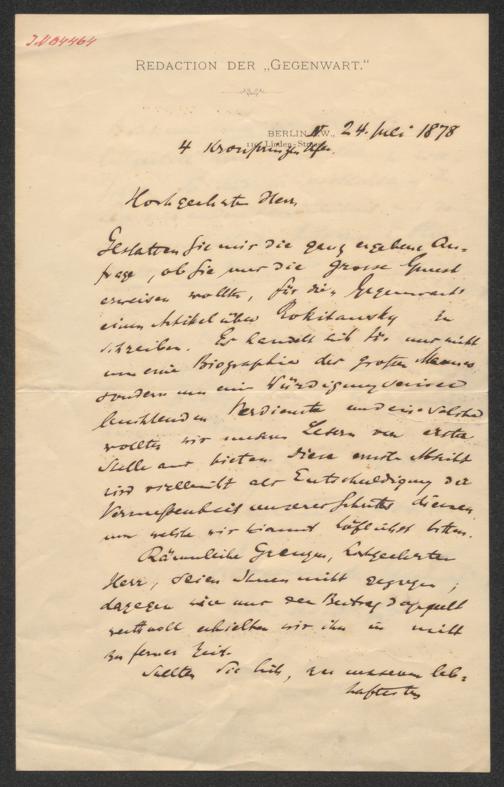 IN 84464
REDACTION DER „GEGENWART.“
BERLIN N.W., 24. Juli 1878
4 Kronprinzen Ufer.
Hochgeehrter Herr
Gestatten Sie mir die ganz ergebene An-
frage, ob Sie mir die grosse Gunst
erweisen wollten, für die „Gegenwart“
einen Artikel über Rokitansky zu
schreiben. Es handelt sich für uns nicht
um eine Biographie des großen Mannes
sondern um eine Würdigung seiner
leuchtenden Verdienste und eine solche
wollten wir unseren Lesern von erster
Stelle aus bieten. Diese ernste Absicht
wird vielleicht als Entschuldigung der
Vermessenheit unseres Schrittes dienen,
um welche wir hiermit höflichst bitten.
Räumliche Grenzen, hochgeehrter
Herr, seien Ihnen nicht gezogen;
dagegen wäre uns der Beitrag doppelt
werthvoll erhielten wir ihn in nicht
zu ferner Zeit.
Sollten Sie sich, zu unserem leb-
haftesten